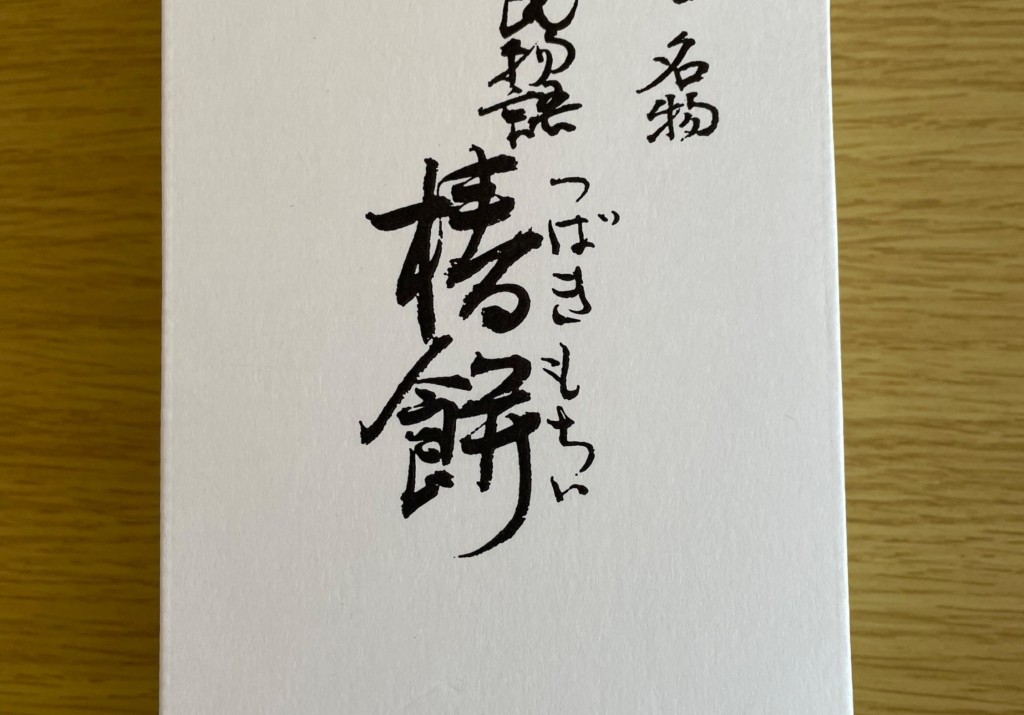 名物
物語
椿餅
つばきもちい